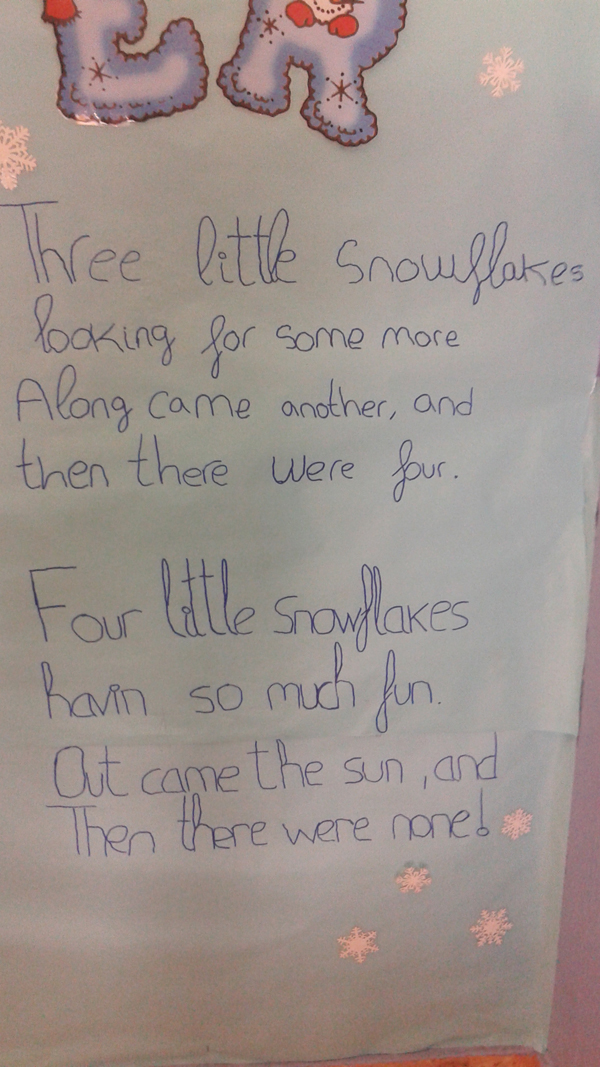 ER
Three little snowflakes
looking for some more
Along came another, and
then there were four.
Four little snowflakes
havin so much fun.
Out came the sun, and
Then there were none!